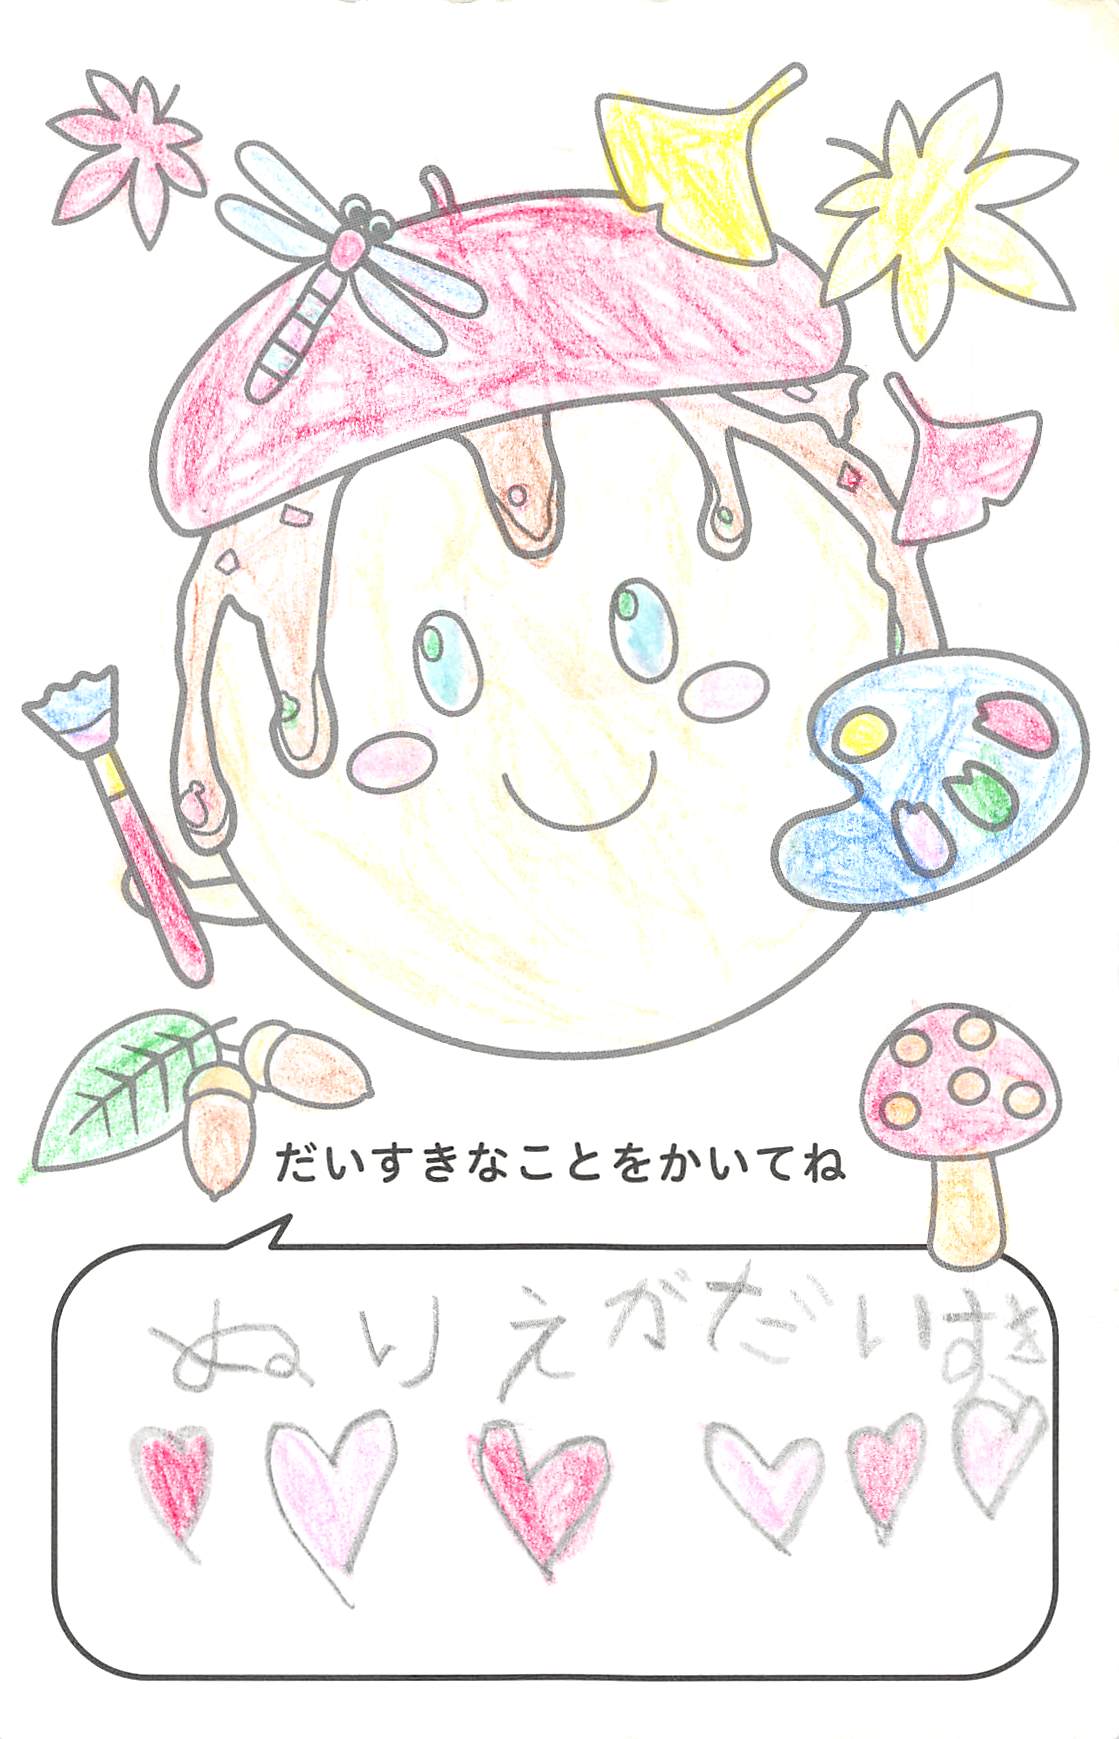 だいすきなことをかいてね
ぬりえがだいすき